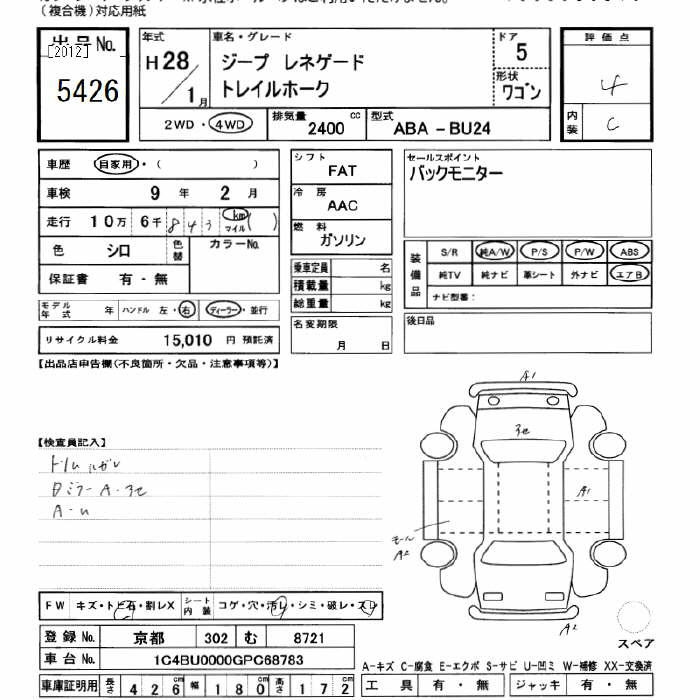 (複合機)対応用紙
出品No. [2012] 5426
年式 H28/1月
車名・グレード ジープ レネゲード トレイルホーク
ドア 5
形状 ワゴン
評価点 4
内装 C
2WD・4WD
排気量 2400 cc
型式 ABA-BU24
車歴 自家用・( )
車検 9年 2月
走行 10万 6千 8 4 3 km マイル( )
色 シロ
色替
カラーNo.
保証書 有・無
モデル年式 年 ハンドル 左・右 ディーラー・並行
リサイクル料金 15,010 円 預託済
シフト FAT
冷房 AAC
燃料 ガソリン
乗車定員 名
積載量 kg
総重量 kg
名変期限 月 日
セールスポイント
バックモニター
装備品 S/R 純A/W P/S P/W ABS
純TV 純ナビ 革シート 外ナビ エアB
ナビ型番:
後日品
【出品店申告欄(不良箇所・欠品・注意事項等)】
【検査員記入】
A1
A1
モール
A2
A2
スペア
FW キズ・トビ石・割レX シート内装 コゲ・穴・汚レ・シミ・破レ・スレ
登録No. 京都 302 む 8721
車台No. 1C4BU0000GPC68783
車庫証明用 長さ 426cm 幅 180cm 高さ 172cm
A-キズ C-腐食 E-エクボ S-サビ U-凹ミ W-補修 XX-交換済
工具 有・無 ジャッキ 有・無